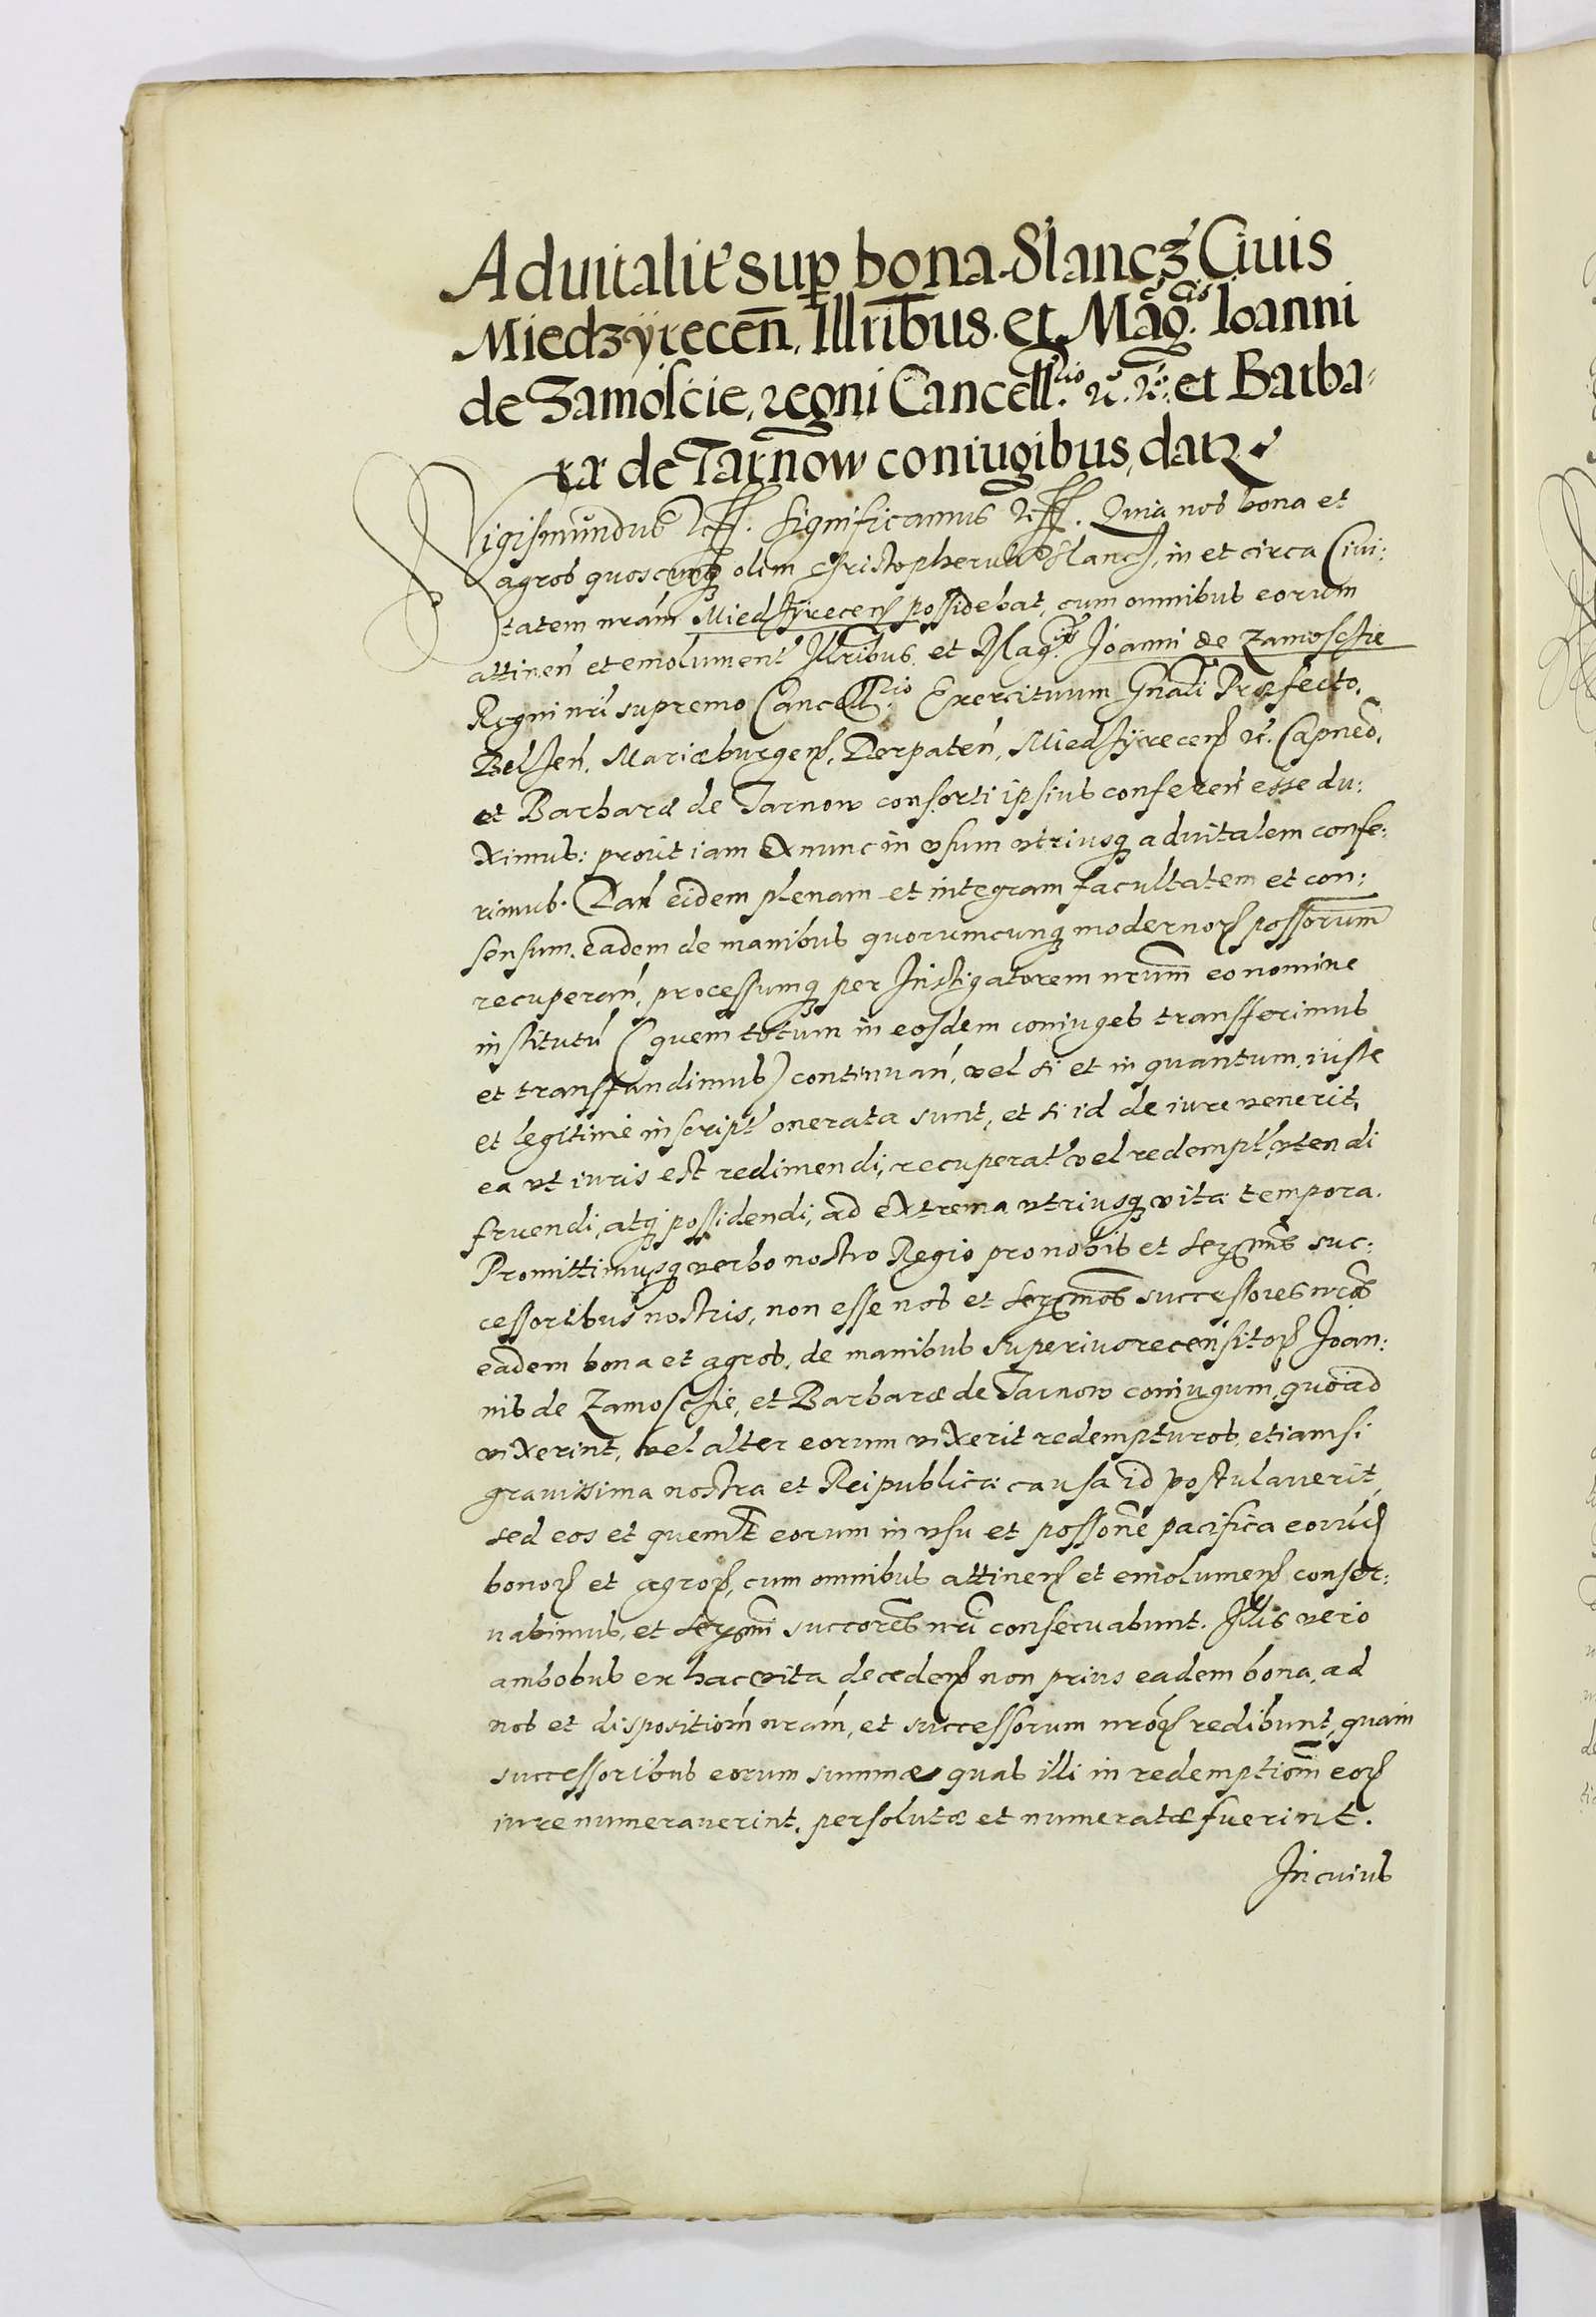 Aduitalit sup bona Slancz Ciuis
Miedzÿrecen̄, Illribus et Mag.cis Ioanni
de Zamoscie, regni Cancell.rio etc. etc. et Barba⸗
ræ de Tarnow coniugibus, datæ
Sigismundus etc. Significamus etc. Quia nos bona et
agros quoscunq olim Christopherus Slancz, in et circa Ciui:
tatem nrām Miedzÿrecen possidebat, cum omnibus eorum
attinen et emolument Illribus et Mag.cis Joanni de Zamosczie
Regni nri supremo Cancell.rio Exercituum Gnali Præfecto,
Belzen, Mariæburgen, Derpaten, Miedzÿrecen etc. Capneo,
et Barbaræ de Tarnow consorti ipsius conferen esse du:
ximus: prout iam ex nunc in vsum vtriusq aduitalem confe:
rimus. Dan eidem plenam et integram facultatem et con:
sensum, eadem de manibus quorumcunq modernor possorum
recuperan, processumq per Instigatorem nrum eo nomine
institutu (quem totum in eosdem coniuges transferimus
et transfundimus) continuan, vel si et in quantum, iuste
et legitime inscript onerata sunt, et si id de iure venerit,
ea vt iuris est redimendi, recuperat vel redempt, vtendi
fruendi, atq possidendi, ad extrema vtriusq vitæ tempora.
Promittimusq verbo nostro Regio pro nobis et Serssmis suc:
cessoribus nostris, non esse nos et Serssmos successores nros
eadem bona et agros, de manibus superius recensitor Joan:
nis de Zamosczie, et Barbaræ de Tarnow coniugum, quoad
vixerint, vel alter eorum vixerit redempturos, etiamsi
grauissima nostra et Reipublicæ causa id postulauerit,
sed eos et quemlt eorum in vsu et possone pacifica eorund
bonor et agror, cum omnibus attinen et emolumen conser:
uabimus, et Serssmi succores nri conseruabunt. Illis vero
ambobus ex hac vita deceden non prius eadem bona, ad
nos et dispositiom nram, et successorum nror redibunt, quam
successoribus eorum summæ quas illi in redemptiom eor
iure numerauerint, persolutæ et numeratæ fuerint.
In cuius